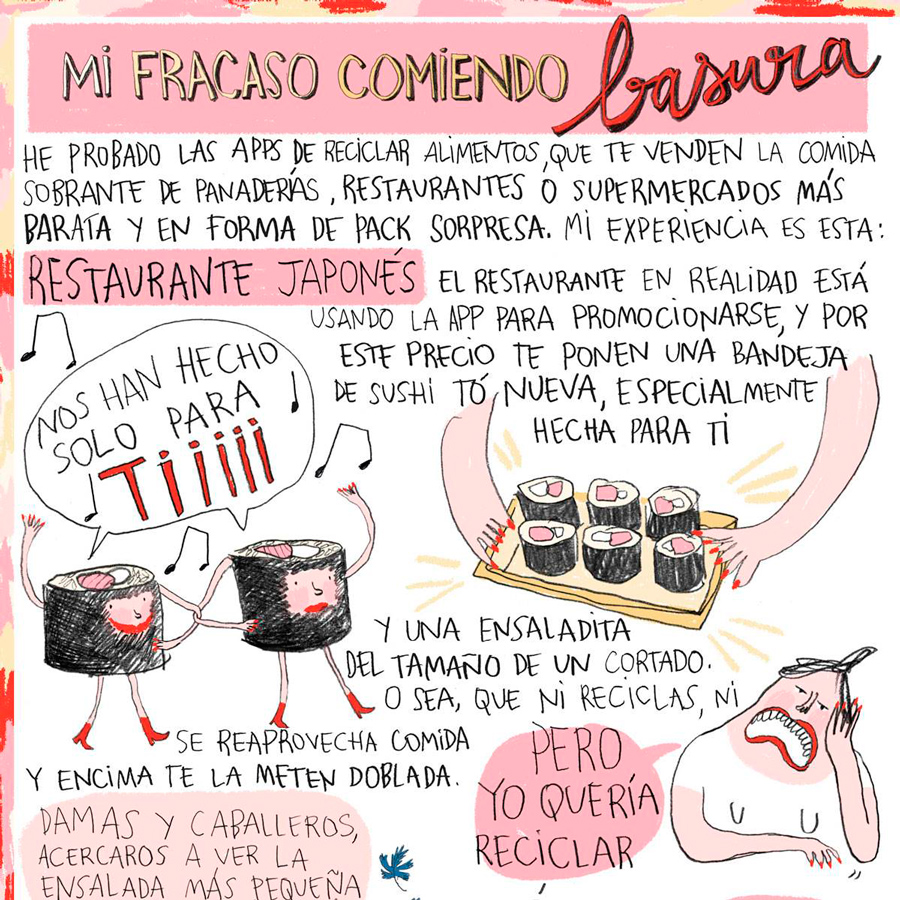 MI FRACASO COMIENDO basura
HE PROBADO LAS APPS DE RECICLAR ALIMENTOS, QUE TE VENDEN LA COMIDA
SOBRANTE DE PANADERÍAS, RESTAURANTES O SUPERMERCADOS MÁS
BARATA Y EN FORMA DE PACK SORPRESA. MI EXPERIENCIA ES ESTA:
RESTAURANTE JAPONÉS
EL RESTAURANTE EN REALIDAD ESTÁ
USANDO LA APP PARA PROMOCIONARSE, Y POR
ESTE PRECIO TE PONEN UNA BANDEJA
DE SUSHI TÓ NUEVA, ESPECIALMENTE
HECHA PARA TI
NOS HAN HECHO
SOLO PARA
Tiiiiii
Y UNA ENSALADITA
DEL TAMAÑO DE UN CORTADO.
O SEA, QUE NI RECICLAS, NI
SE REAPROVECHA COMIDA
Y ENCIMA TE LA METEN DOBLADA.
PERO
YO QUERÍA
RECICLAR
DAMAS Y CABALLEROS,
ACERCAROS A VER LA
ENSALADA MÁS PEQUEÑA